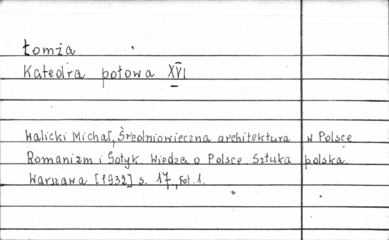 Łomża
Katedra połowa XVI
Walicki Michał, Średniowieczna architektura w Polsce
Romanizm i Gotyk. Wiedza o Polsce. Sztuka polska.
Warszawa [1932] s. 17, fot. 1.